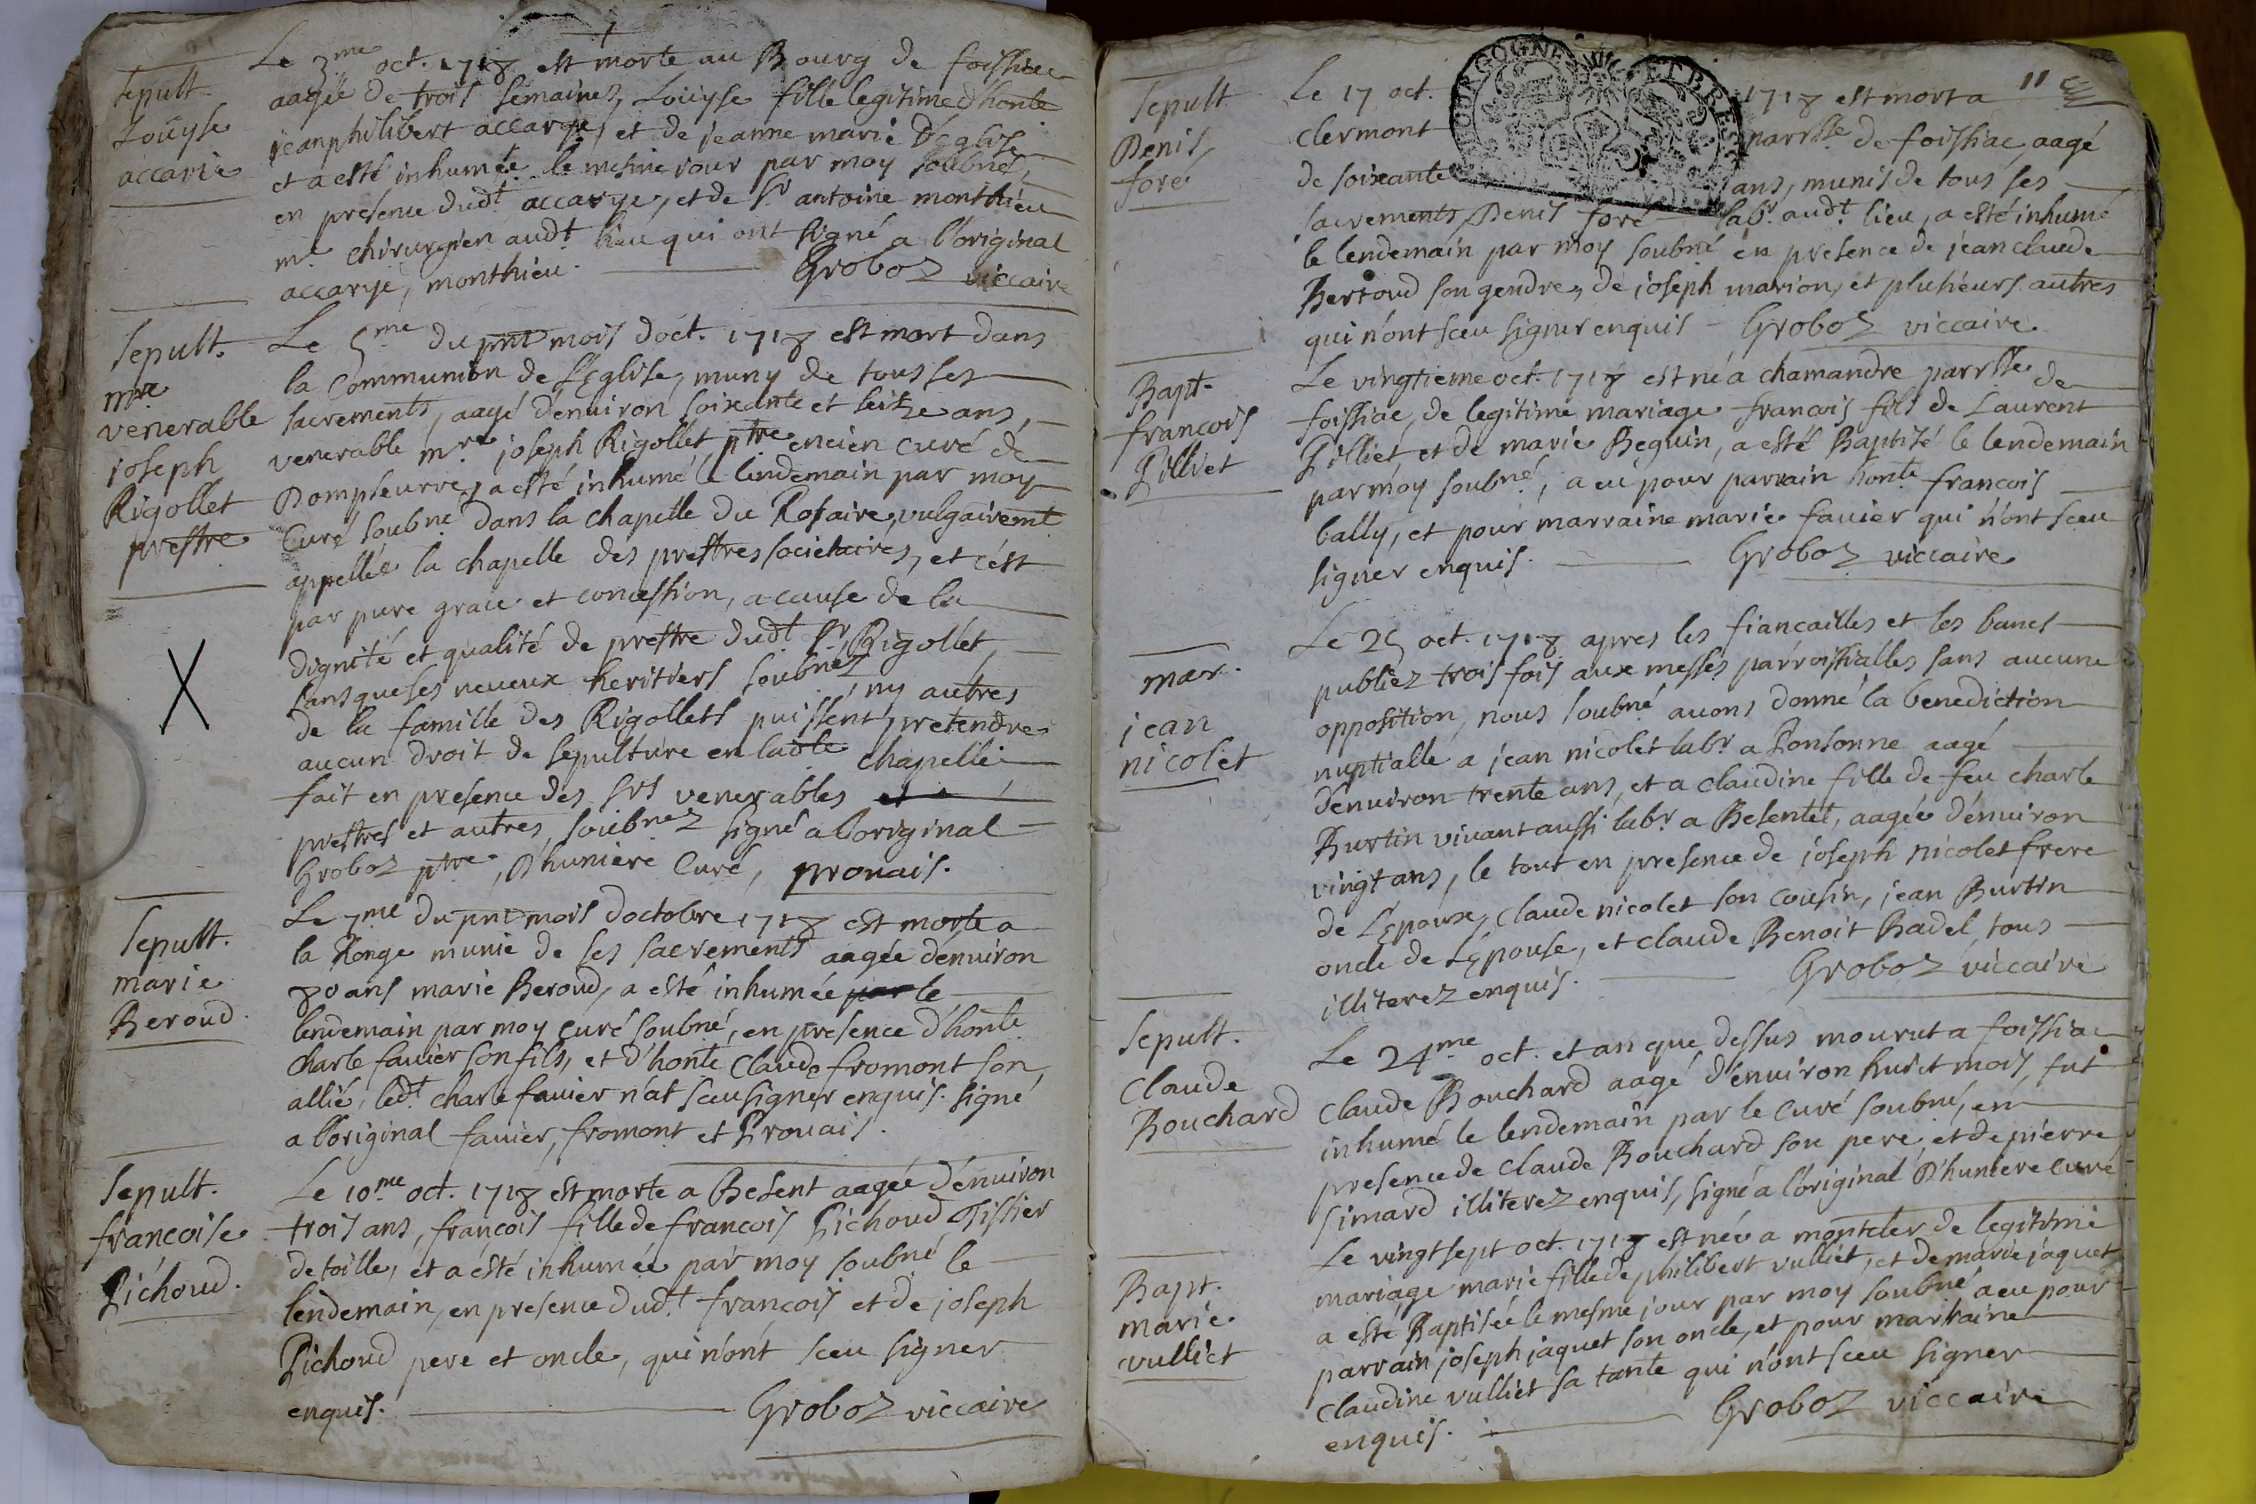 Sepult.
Loüyse
accarie
Le 3me oct. 1718 est morte au Bourg de foissiac
aagée de trois semaines, Loüyse fille legitime d'honte
jeanphilibert accarye, et de jeanne marie D'Eglise
et a esté inhumée le mesme jour par moy soubné,
en presence dudt accarye, et de Sr antoine monthieu
me chirurgien audt lieu qui ont signé a l'original
accarye, monthieu. Groboz viccaire
Sepult.
mre
venerable
joseph
Rigollet
prestre
Le 5me du pnt mois doct. 1718 est mort dans
la Communion de l'Eglise, muny de tous ses
sacrements, aagé d'enuiron soixante et seitze ans,
venerable mre joseph Rigollet ptre encien curé de
Dompseurre, a esté inhumé le lendemain par moy
Curé soubné dans la chapelle du Rosaire, vulgairemt
appellée la chapelle des prestres societaires, et c'est
par pure grace et concession, a cause de la
dignité et qualité de prestre dudt Sr Rigollet,
sans que ses neueux heritiers soubnéz ny autres
de la famille des Rigollets puissent, pretendre
aucun droit de sepulture en ladte chapelle
fait en presence des Srs venerables
prestres et autres, soubnéz signé a l'original
Groboz ptre, D'huniere Curé, prouais.
Sepult.
marie
Beroud.
Le 7me du pnt mois doctobre 1718 est morte a
la Ronge munie de ses sacrements aagée denuiron
80 ans marie Beroud, a esté inhumée par le
lendemain par moy curé soubné, en presence d'honte
charle fauier son fils, et d'honte Claude fromont son
allié, ledt charle fauier n'at sceu signer enquis. signé
a l'original fauier, fromont et Prouais.
Sepult.
francoise
Pichoud.
Le 10me oct. 1718 est morte a Besent aagée d'enuiron
trois ans, francois fille de francois Pichoud Tissier
de toille, et a esté inhumée par moy soubné le
lendemain, en presence dudt francois et de joseph
Pichoud pere et oncle, qui n'ont sceu signer
enquis. Groboz viccaire
11
BOURGOGNE ET BRESSE
Sepult
Denis
foré
Le 17 oct. 1718 est mort a
Clermont parrsse de foissiac aagé
de soixante ans, munis de tous ses
sacrements Denis foré labr audt lieu, a esté inhumé
le lendemain par moy soubné en presence de jean claude
Bertoud son gendre, de joseph marion, et plusieurs autres
qui n'ont sceu signer enquis - Groboz viccaire
Bapt.
francois
Pilliet
Le vingtieme oct. 1718 est né a chamandre parrsse de
foissiac, de legitime mariage francois fils de Laurent
Pilliet, et de marie Beguin, a esté Baptisé le lendemain
par moy soubné, a eû pour parrain honte francois
bally, et pour marraine marie fauier qui n'ont sceu
signer enquis. Groboz viccaire
mar.
jean
nicolet
Le 25 oct. 1718 apres les fiancailles et les bancs
publiez trois fois aux messes parroissialles sans aucune
opposition, nous soubné auons donné la benediction
nuptialle a jean nicolet labr a Consonne aagé
d'enuiron trente ans, et a Claudine fille de feu charle
Burtin viuant aussi labr a Besentet, aagée d'enuiron
vingt ans, le tout en presence de joseph nicolet frere
de l'Epoux, claude nicolet son cousin, jean Burtin
oncle de l'Epouse, et claude Benoit Badel, tous
illiterez enquis. Groboz viccaire
Sepult.
Claude
Bouchard
Le 24me oct. et an que dessus mourut a foissia
Claude Bouchard aagé d'enuiron huict mois, fut
inhumé le lendemain par le curé soubné, en
presence de claude Bouchard son pere et de pierre
Simard illiterez enquis, signé a l'original D'huniere curé
Bapt.
marie
vulliet
Le vingt sept oct. 1718 est née a montcler de legitime
mariage marie fille de philibert vulliet, et de marie jaquet
a esté Baptisée le mesme jour par moy soubné a eu pour
parrain joseph jaquet son oncle, et pour marraine
claudine vulliet sa tante qui n'ont sceu signer
enquis. Groboz viccaire